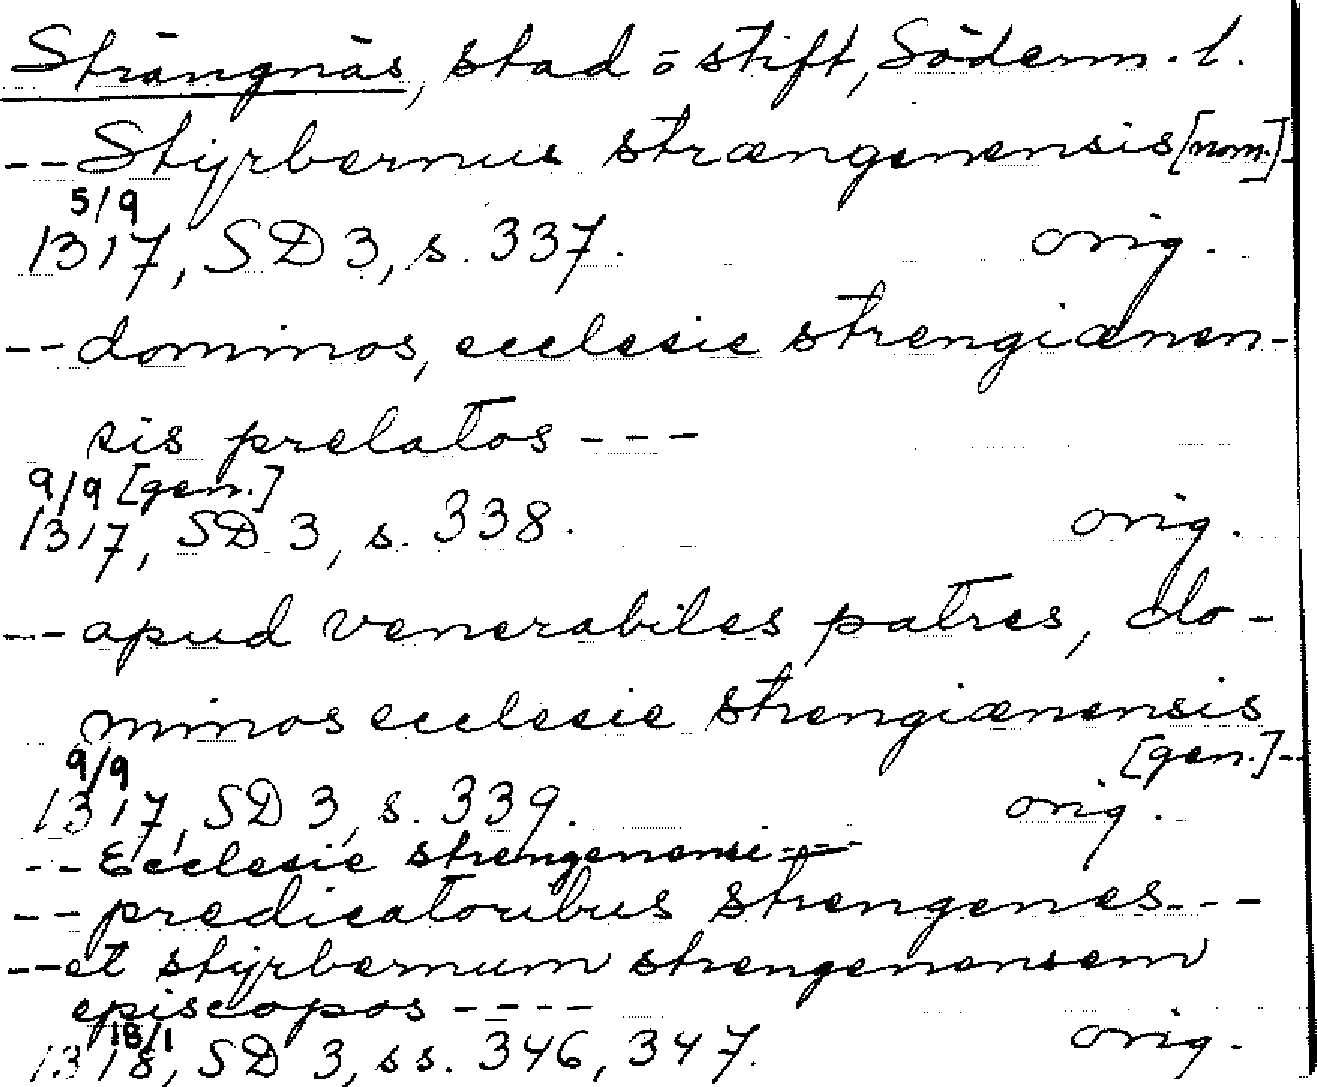 Strängnäs, stad o stift, Söderm. l.
-- Stÿrbernus strængenensis [nom.] -
5/9
1317, SD 3, s. 337. orig.
-- dominos, ecclesie strengiænen-
sis prelatos ---
9/9 [gen.]
1317, SD 3, s. 338. orig.
--- apud venerabiles patres, do-
minos ecclesie strengiænensis
[gen.] --
9/9
1317, SD 3, s. 339. orig.
-- Ecclesie strengenensi ---
-- predicatoribus strengenes ---
-- et stÿrbernum strengenensem
episcopos ----
18/1
1318, SD 3, ss. 346, 347. orig.